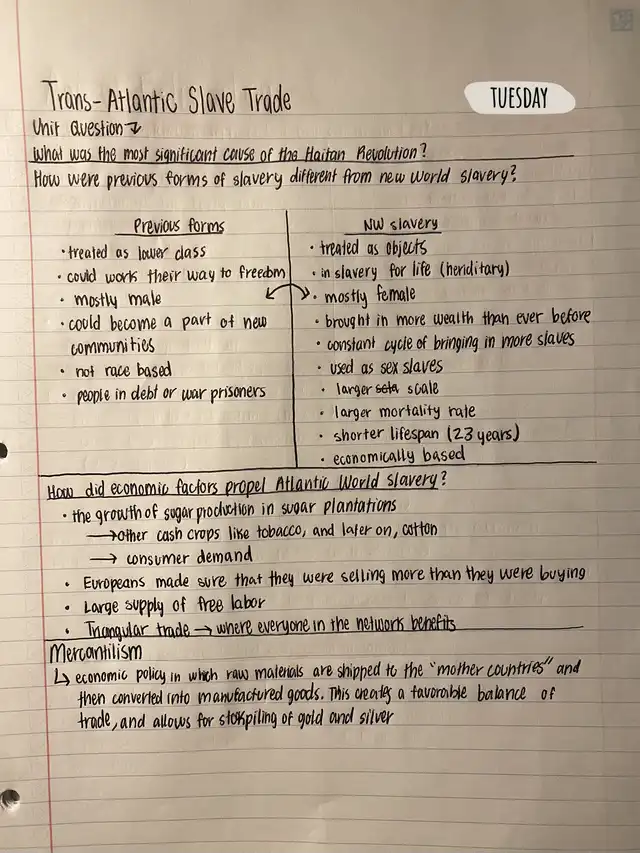 Trans-Atlantic Slave Trade
TUESDAY
Unit Question ↴
What was the most significant cause of the Haitan Revolution?
How were previous forms of slavery different from new world slavery?
Previous forms
• treated as lower class
• could work their way to freedom
• mostly male
• could become a part of new
communities
• not race based
• people in debt or war prisoners
NW slavery
• treated as objects
• in slavery for life (heriditary)
• mostly female
• brought in more wealth than ever before
• constant cycle of bringing in more slaves
• used as sex slaves
• larger scale
• larger mortality rate
• shorter lifespan (23 years)
• economically based
How did economic factors propel Atlantic World slavery?
• the growth of sugar production in sugar plantations
→ other cash crops like tobacco, and later on, cotton
→ consumer demand
• Europeans made sure that they were selling more than they were buying
• Large supply of free labor
• Triangular trade → where everyone in the network benefits
Mercantilism
↳ economic policy in which raw materials are shipped to the "mother countries" and
then converted into manufactured goods. This creates a favorable balance of
trade, and allows for stokpiling of gold and silver